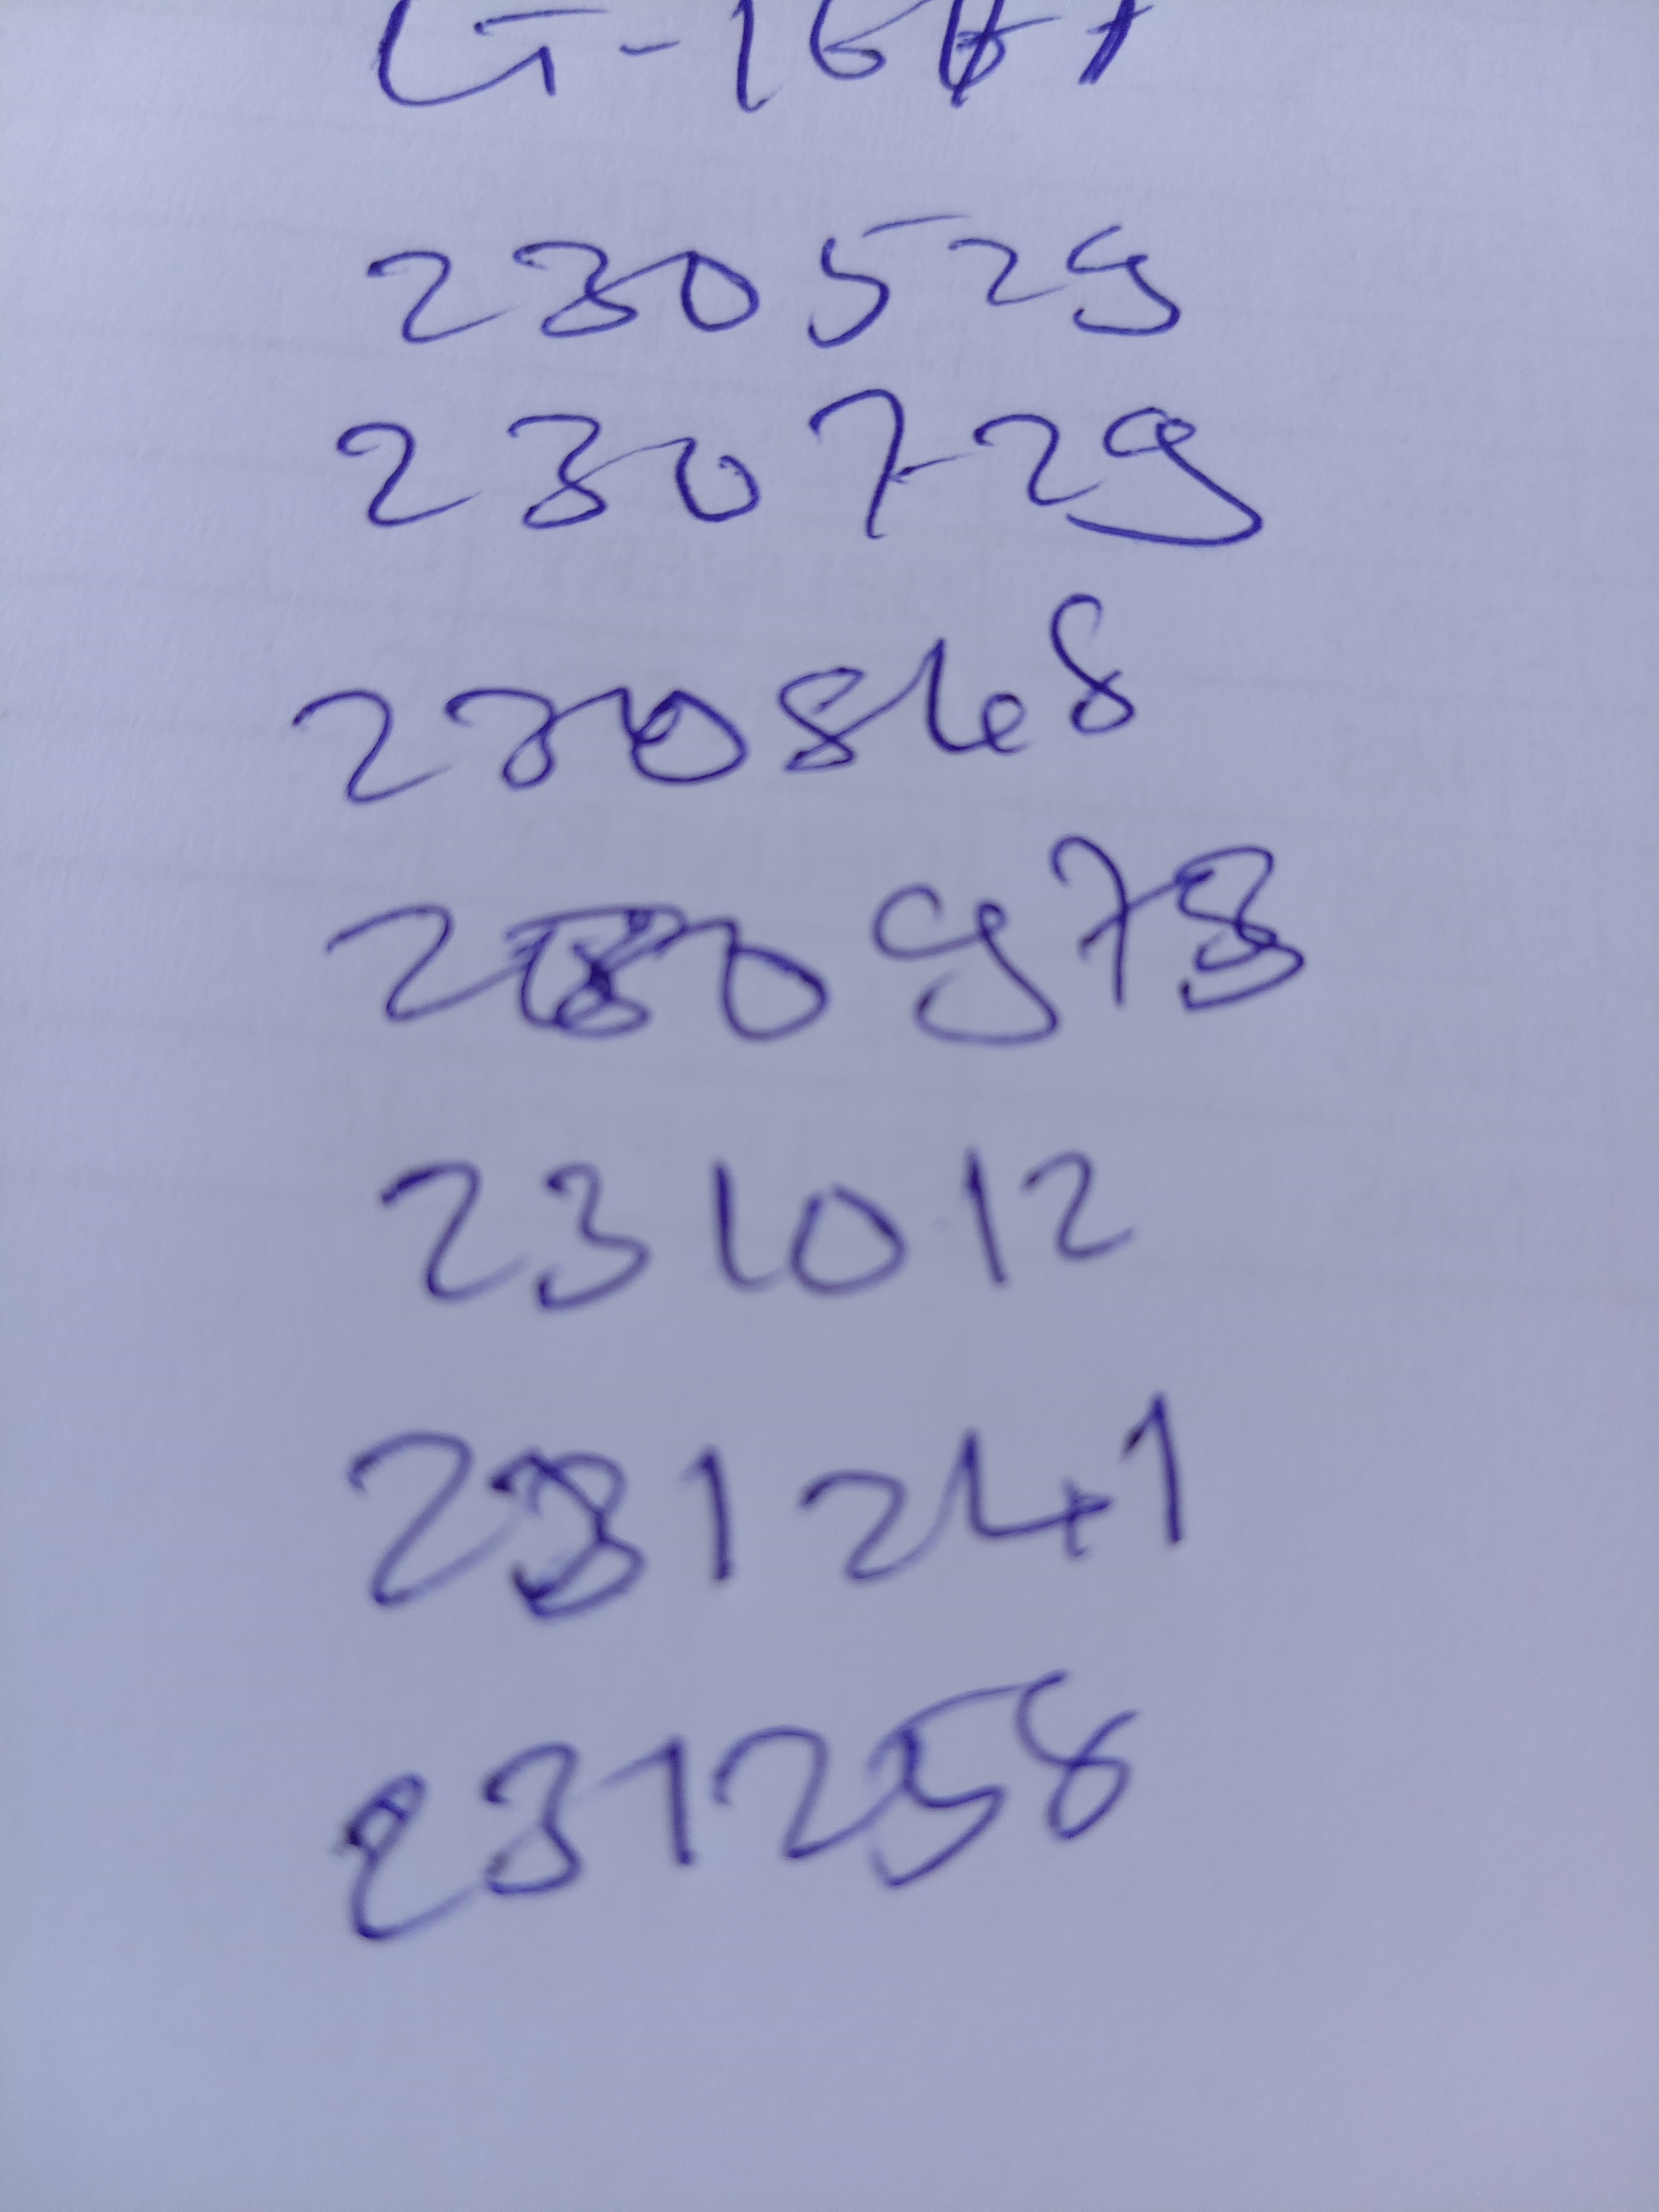 230529
230729
230868
230973
231012
231241
231258